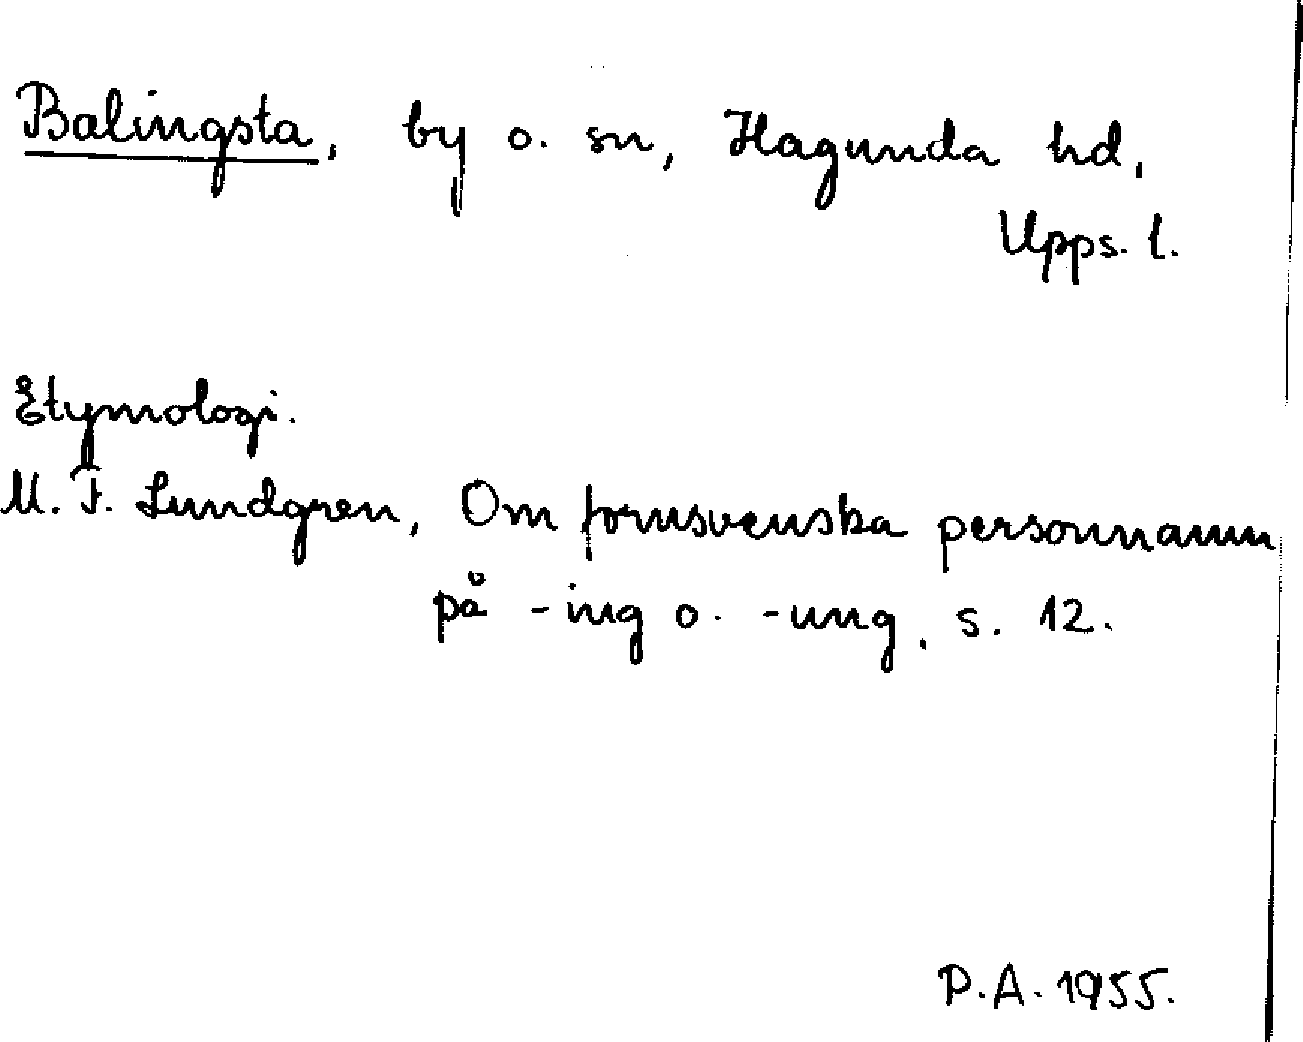 Balingsta, by o. sn, Hagunda hd,
Upps. l.
Etymologi.
M. F. Lundgren, Om fornsvenska personnamn
på -ing o. -ung, s. 12.
P.A. 1955.